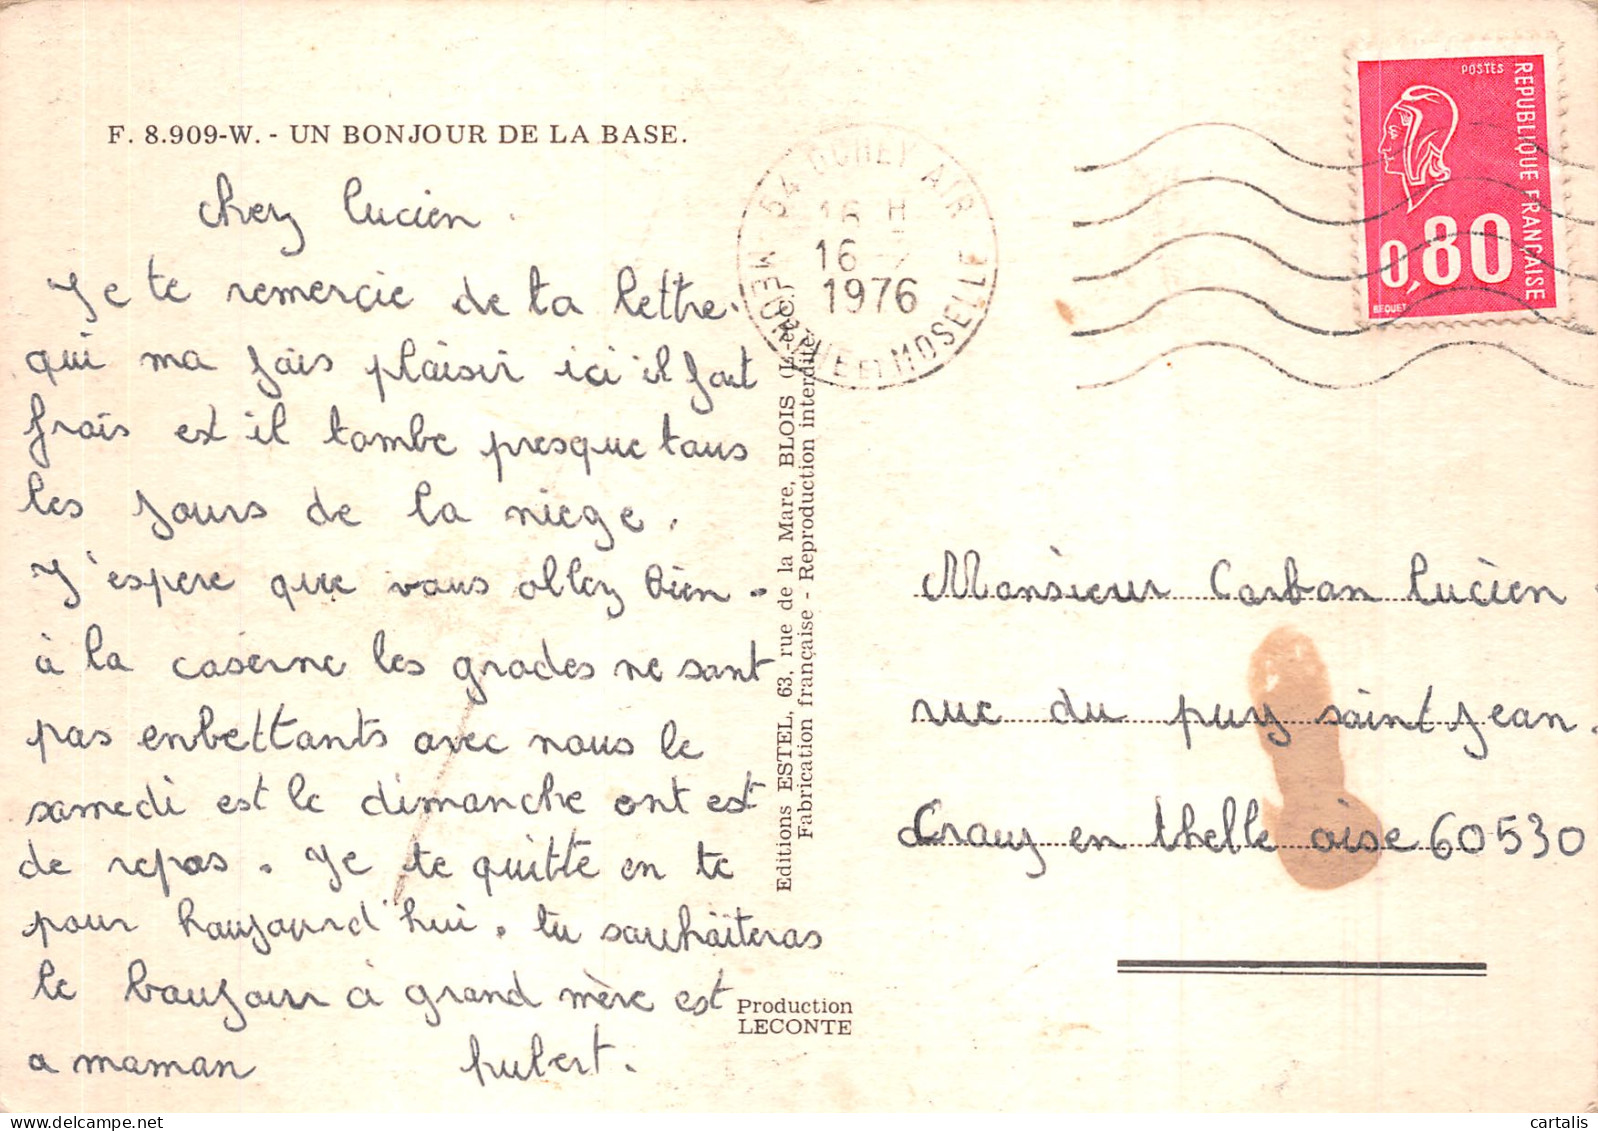 F. 8.909-W. - UN BONJOUR DE LA BASE.
chez lucien.
Je te remercie de ta lettre.
qui ma fais plaisir ici il fait
frais et il tombe presque tous
les jours de la niege.
J'espere que vous allez bien.
à la caserne les grades ne sont
pas enbettants avec nous le
samedi est le dimanche ont est
de repos. Je te quitte en te
pour haujourd'hui. tu souhaiteras
le boujour a grand mère est
a maman hubert.
Editions ESTEL, 63, rue de la Mare, BLOIS (L.-et-C.)
Fabrication française - Reproduction interdite
Production
LECONTE
54 OCHEY AIR
16 H
16
1976
MEURTHE ET MOSELLE
POSTES
REPUBLIQUE FRANÇAISE
0,80
BEQUET
Monsieur Carban lucien
rue du puy saint jean.
Crouy en thelle oise 60530
cartalis
delcampe.net